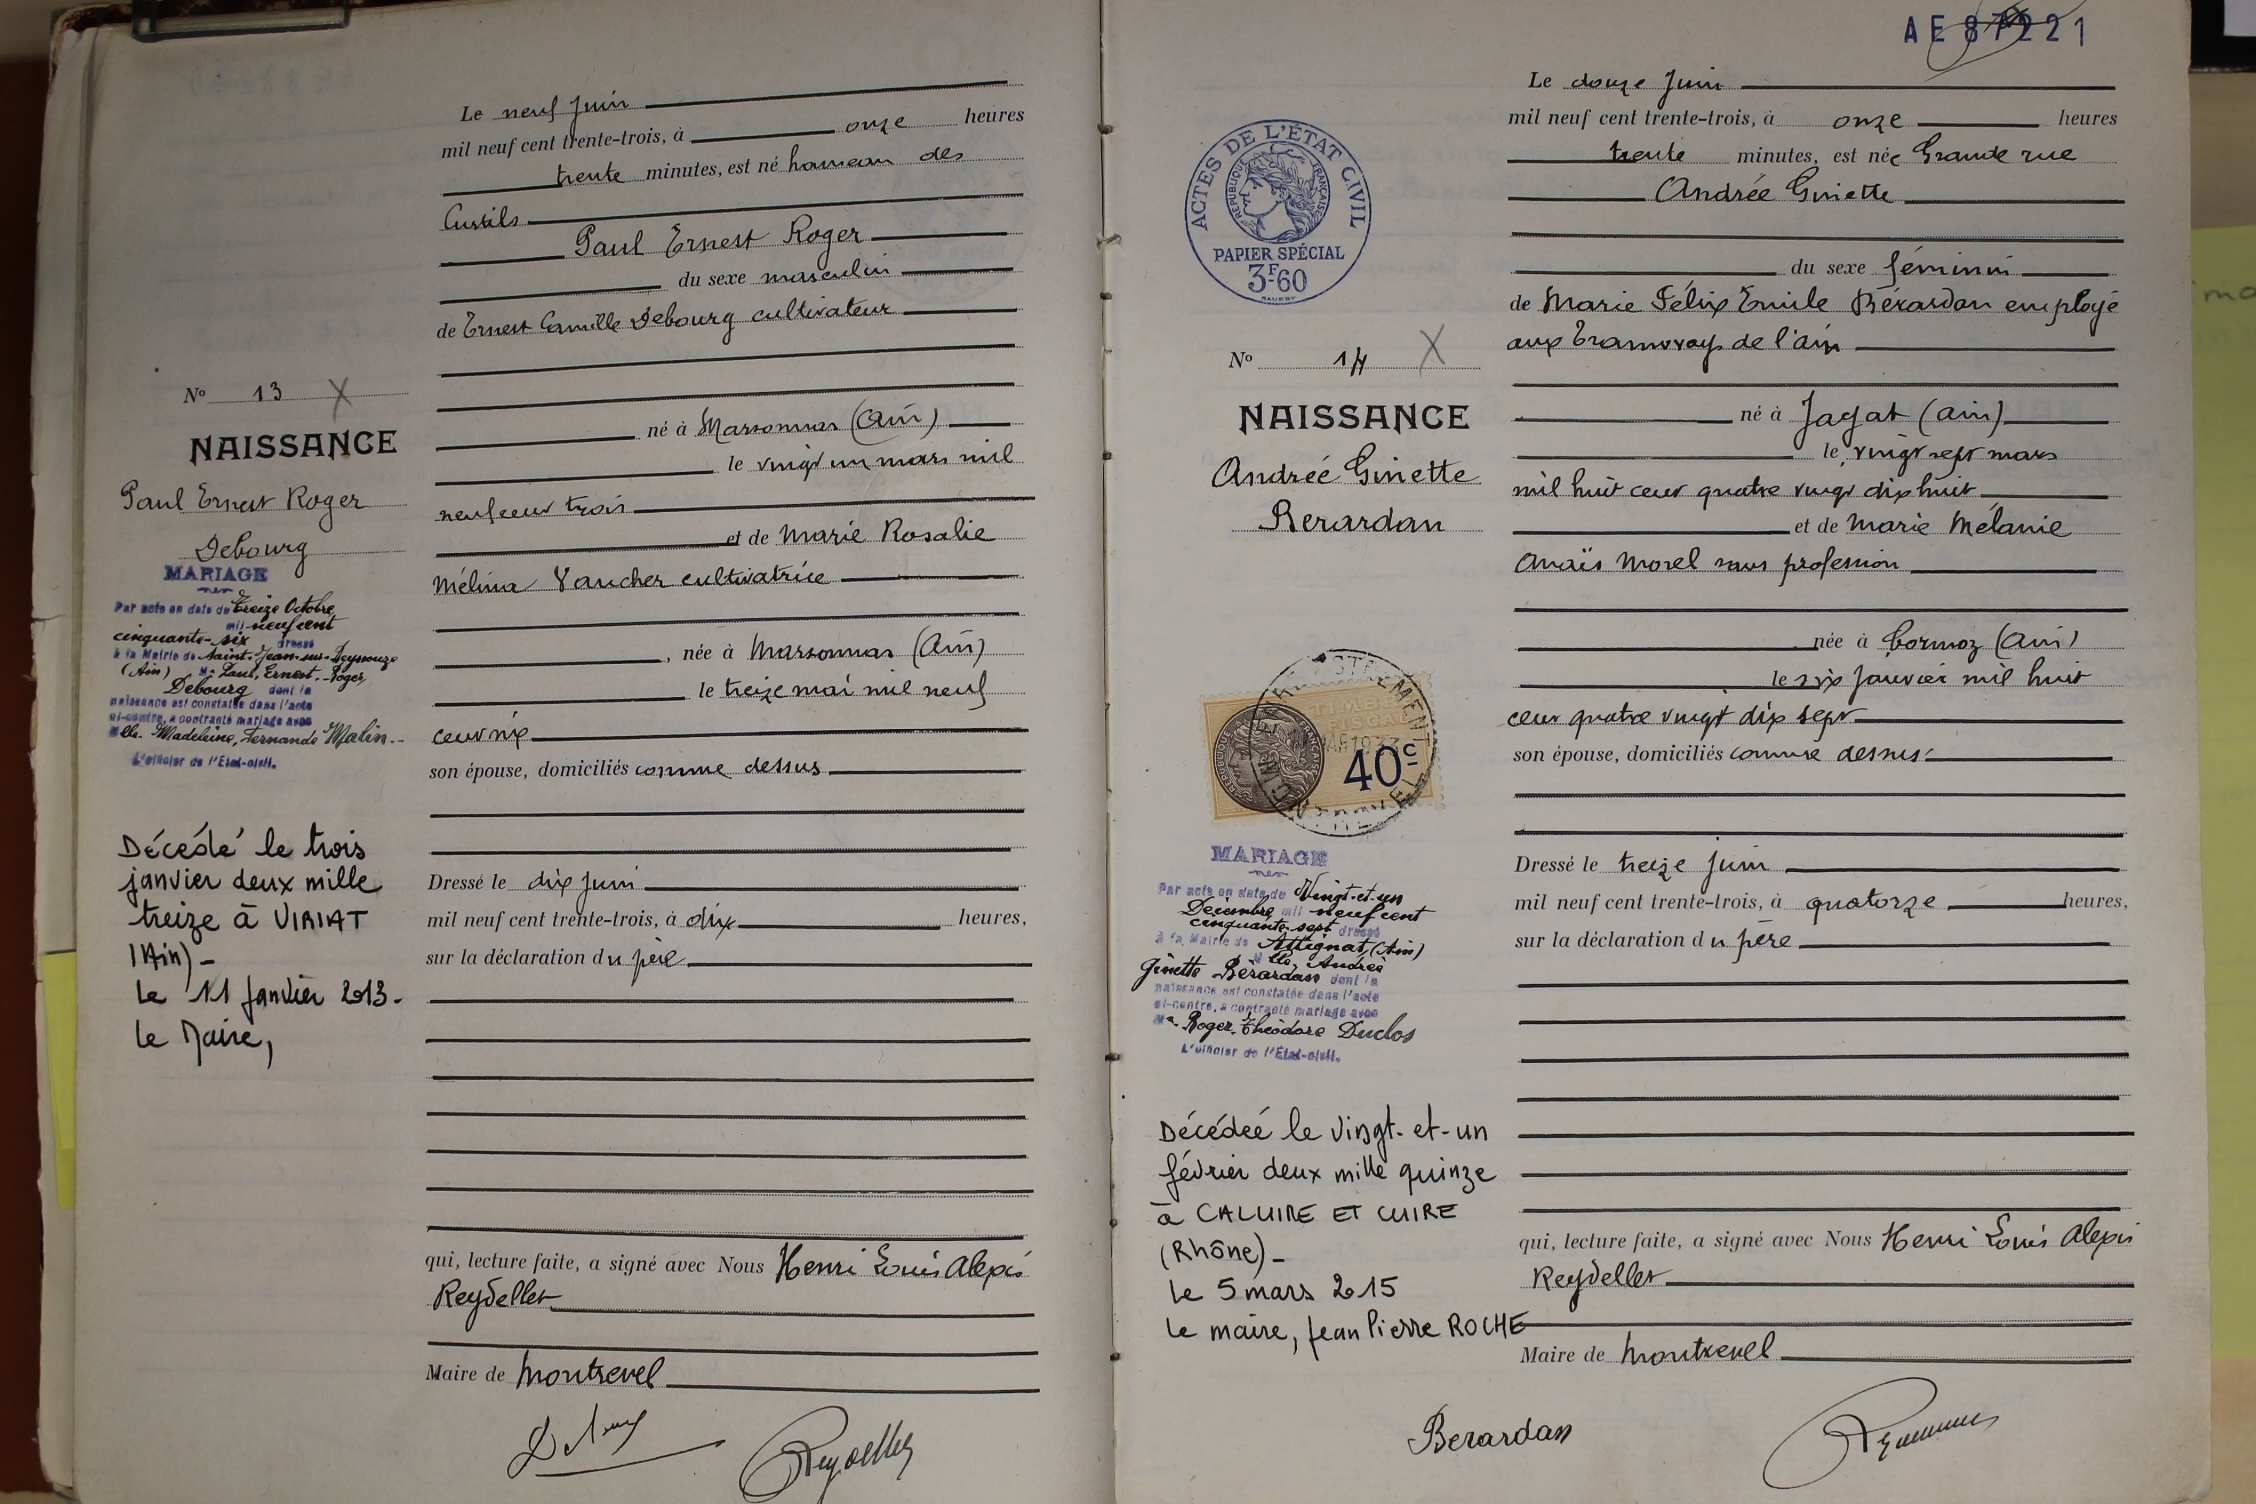 Le neuf Juin
mil neuf cent trente-trois, à onze heures
trente minutes, est né hameau des
Custils
Paul Ernest Roger
du sexe masculin
de Ernest Camille Debourg cultivateur
N° 13 X
né à Marsonnas (Ain)
NAISSANCE
le vingt un mars mil
Paul Ernest Roger
neuf cent trois
Debourg
et de Marie Rosalie
Mélina Vaucher cultivatrice
MARIAGE
Par acte en date du Treize Octobre
mil neuf cent
cinquante-six dressé
à la Mairie de Saint-Jean-sur-Reyssouze
(Ain) Mr Paul, Ernest, Roger
Debourg dont la
naissance est constatée dans l'acte
ci-contre, a contracté mariage avec
Mlle Madeleine, Fernande Malin
L'officier de l'Etat-civil.
, née à Marsonnas (Ain)
le treize mai mil neuf
cent six
son épouse, domiciliés comme dessus
Décédé le trois
janvier deux mille
treize à VIRIAT
(Ain)-
Le 11 janvier 2013-
Le Maire,
Dressé le dix Juin
mil neuf cent trente-trois, à dix heures,
sur la déclaration du père
qui, lecture faite, a signé avec Nous Henri Louis Alexis
Reydellet
Maire de Montrevel
Debourg
Reydellet
AE 87221
Le douze Juin
mil neuf cent trente-trois, à onze heures
trente minutes, est née Grande rue
Andrée Ginette
du sexe féminin
de Marie Félix Emile Bérardan employé
aux tramways de l'ain
ACTES DE L'ÉTAT CIVIL
RÉPUBLIQUE FRANÇAISE
PAPIER SPÉCIAL
3F60
N° 14 X
NAISSANCE
Andrée Ginette
Berardan
né à Jayat (ain)
le vingt sept mars
mil huit cent quatre vingt dix huit
et de Marie Mélanie
Anaïs Morel sans profession
née à Cormoz (ain)
le six Janvier mil huit
cent quatre vingt dix sept
son épouse, domiciliés comme dessus
TIMBRE
FISCAL
40c
MARIAGE
Par acte en date du Vingt-et-un
Décembre mil neuf cent
cinquante-sept dressé
à la Mairie de Attignat (Ain)
Mlle, Andrée
Ginette Bérardan dont la
naissance est constatée dans l'acte
ci-contre, a contracté mariage avec
Mr Roger, Théodore Duclos
L'officier de l'Etat-civil.
Décédée le vingt-et-un
février deux mille quinze
à CALUIRE ET CUIRE
(Rhône)-
Le 5 mars 2015
Le maire, Jean Pierre ROCHE
Dressé le treize Juin
mil neuf cent trente-trois, à quatorze heures,
sur la déclaration du père
qui, lecture faite, a signé avec Nous Henri Louis Alexis
Reydellet
Maire de Montrevel
Berardan